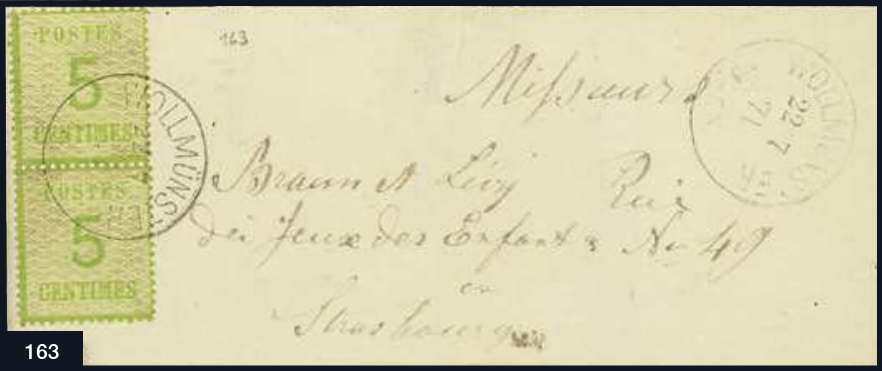 POSTES
5
CENTIMES
POSTES
5
CENTIMES
163
WOLLMÜNSTER
WOLLMÜNSTER
22 7
71
Braun & Lévy Rue
des Jeux des Enfants No 49
en
Strasbourg
163